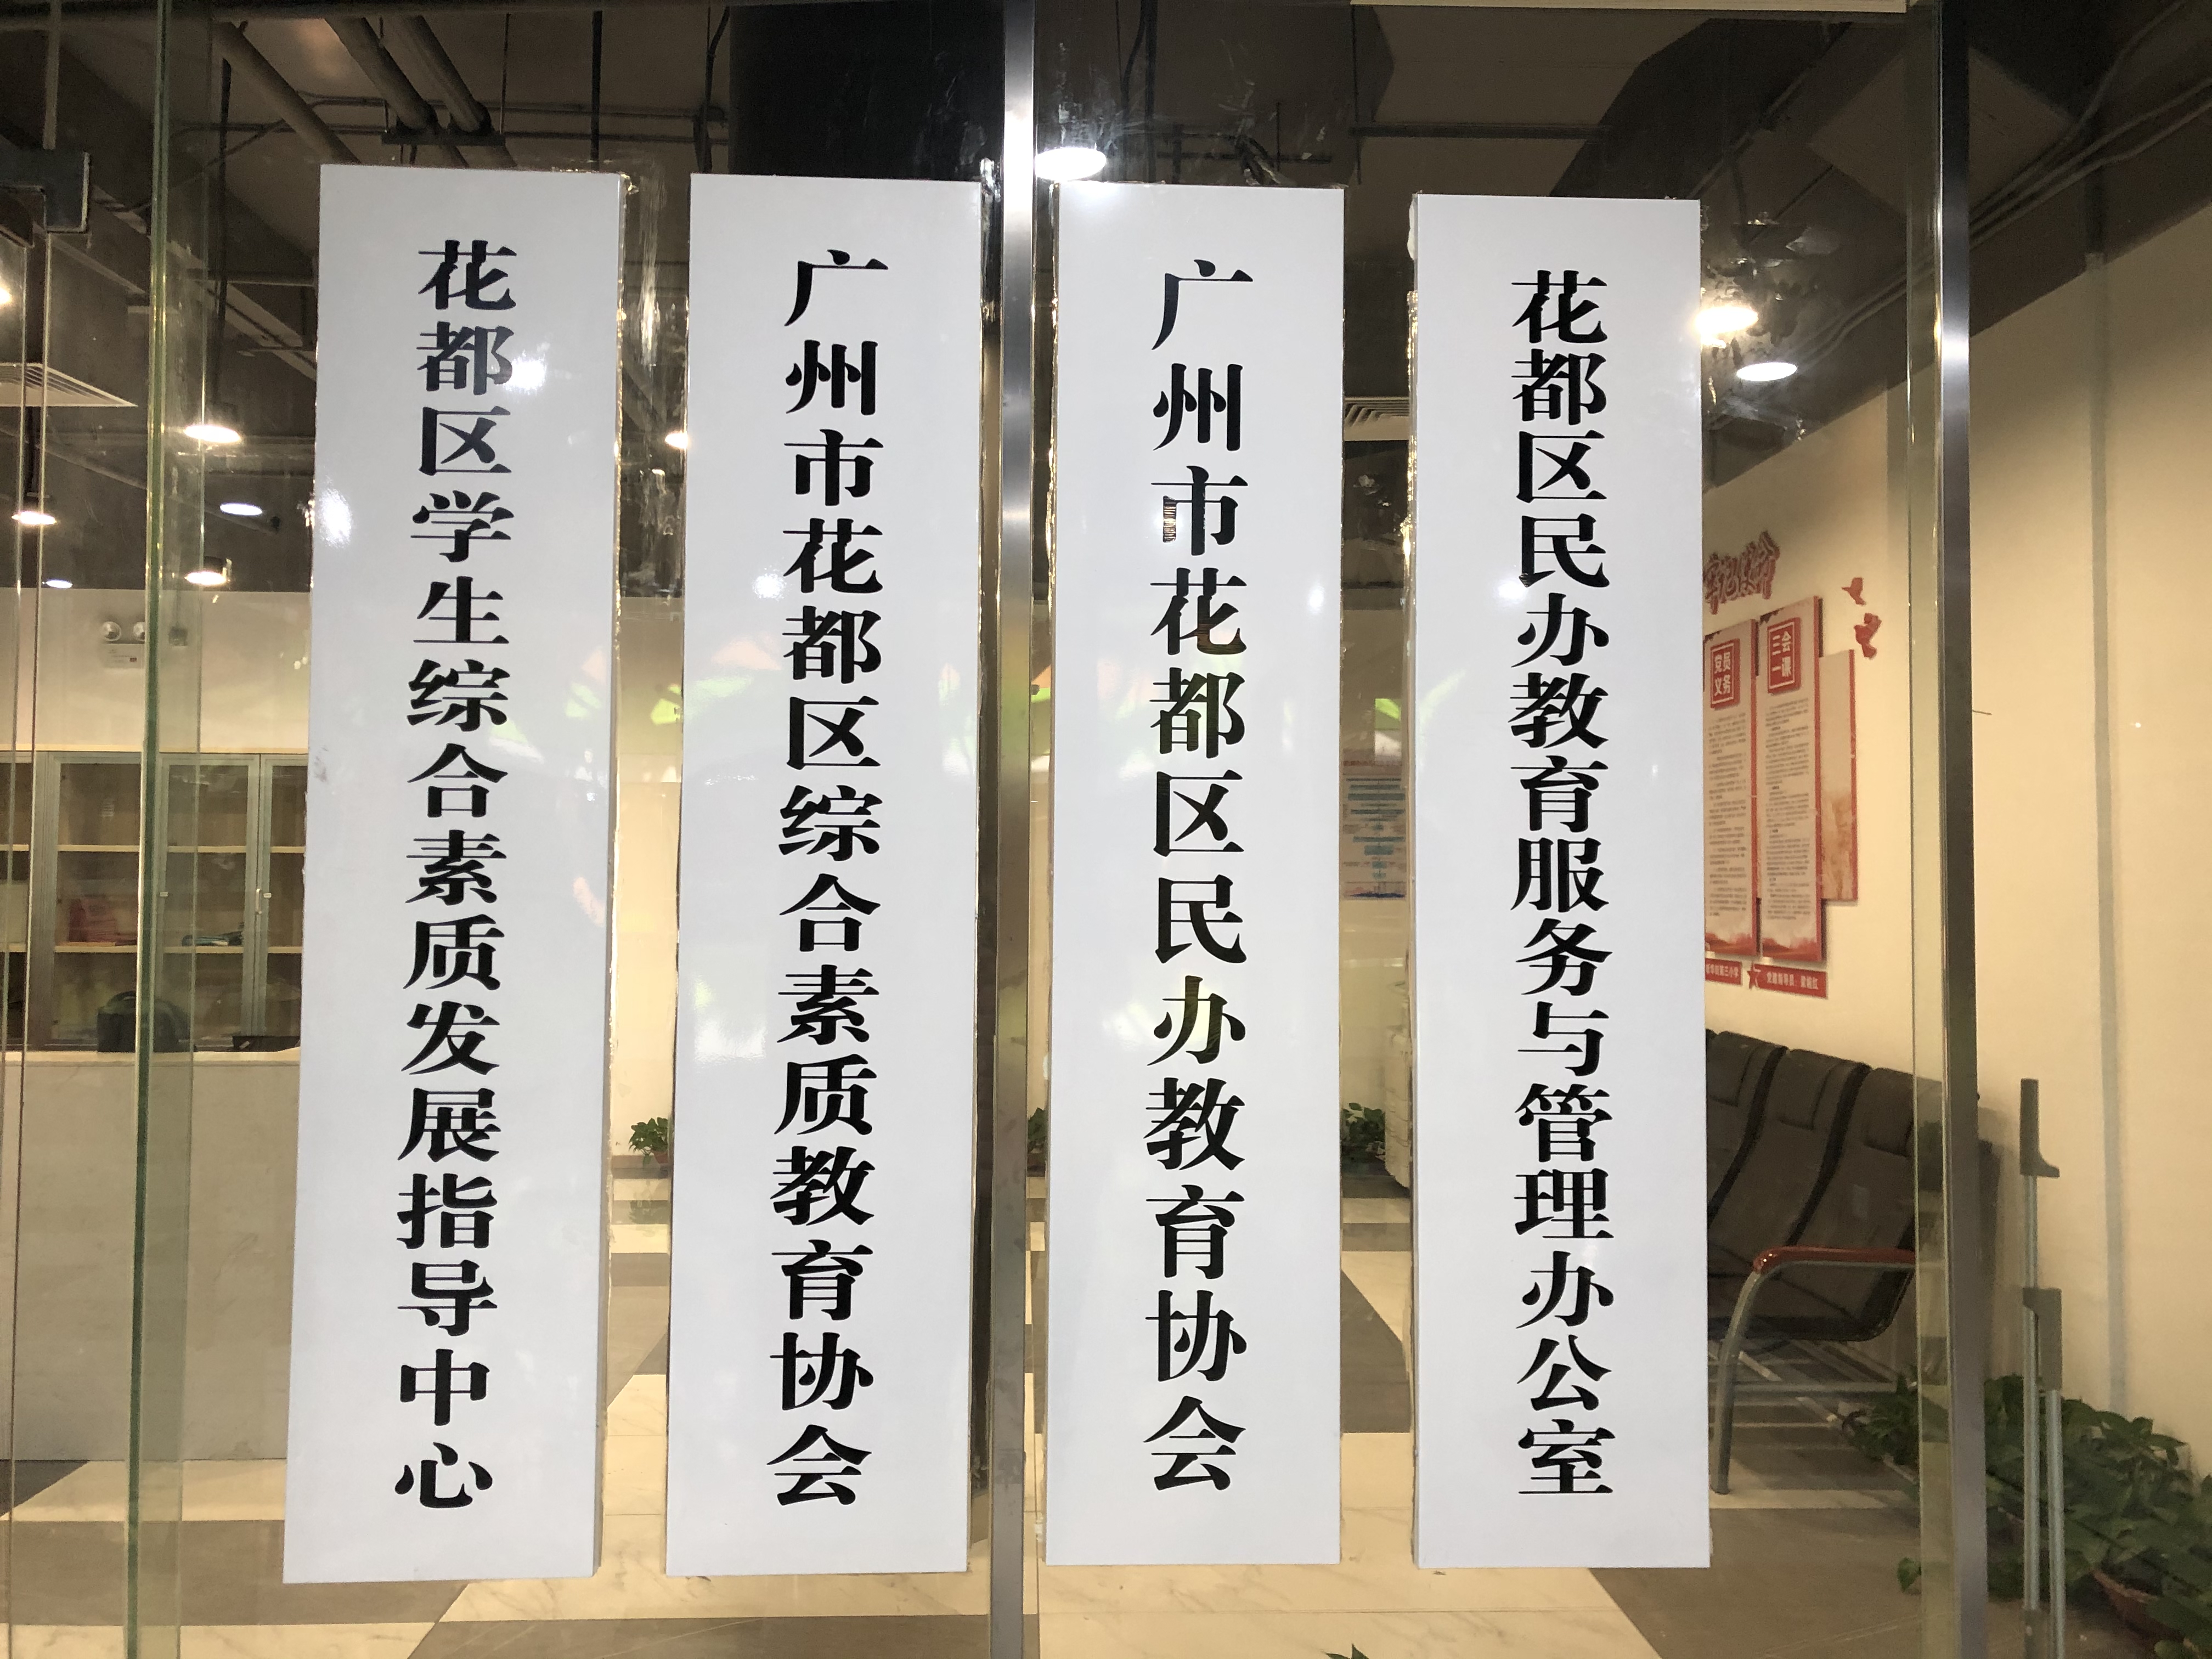 花都区学生综合素质发展指导中心
广州市花都区综合素质教育协会
广州市花都区民办教育协会
花都区民办教育服务与管理办公室
党员
义务
三会
一课